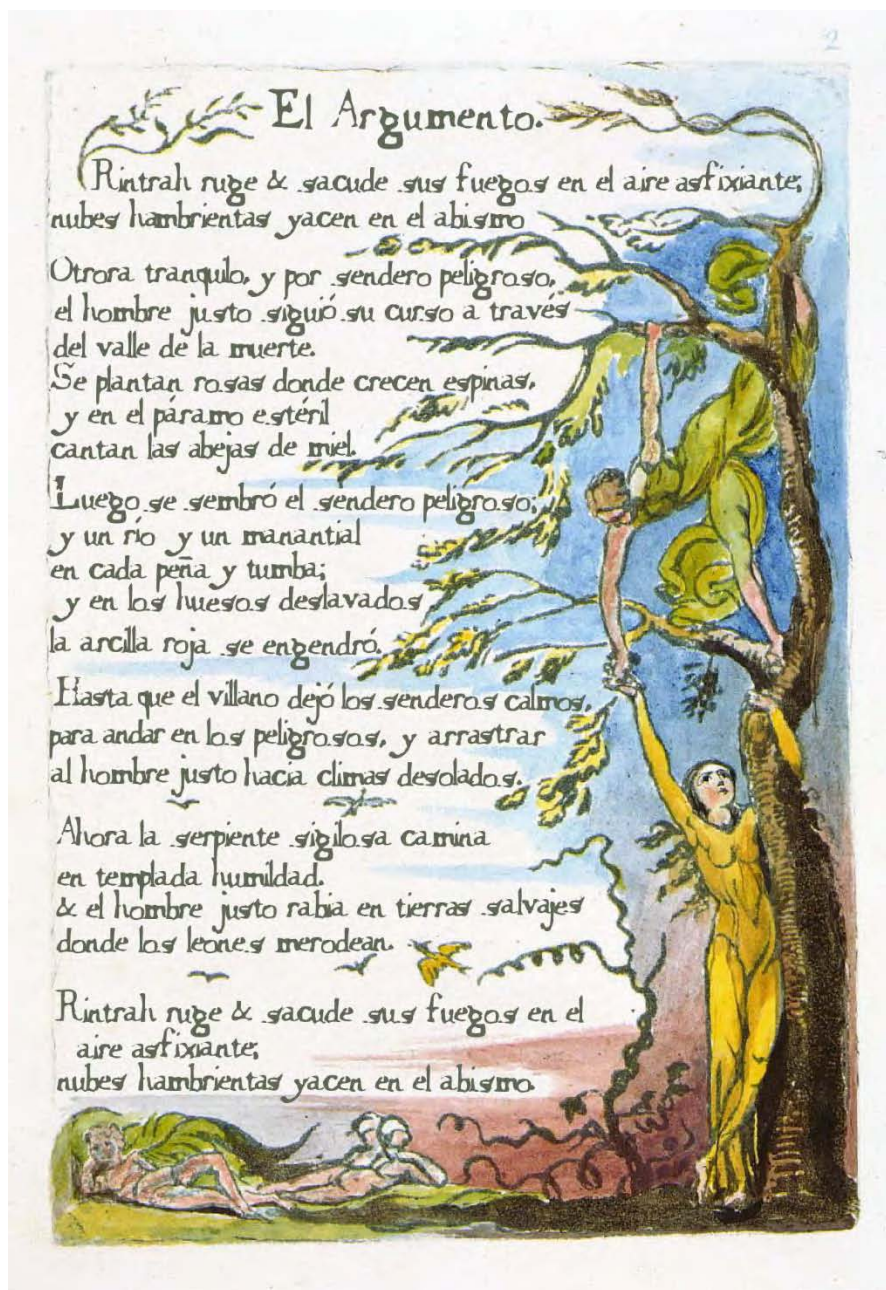 2
El Argumento.
Rintrah ruge & sacude sus fuegos en el aire asfixiante;
nubes hambrientas yacen en el abismo
Otrora tranquilo, y por sendero peligroso,
el hombre justo siguió su curso a través
del valle de la muerte.
Se plantan rosas donde crecen espinas,
y en el páramo estéril
cantan las abejas de miel.
Luego se sembró el sendero peligroso;
y un río y un manantial
en cada peña y tumba;
y en los huesos deslavados
la arcilla roja se engendró.
Hasta que el villano dejó los senderos calmos,
para andar en los peligrosos, y arrastrar
al hombre justo hacia climas desolados.
Ahora la serpiente sigilosa camina
en templada humildad.
& el hombre justo rabia en tierras salvajes
donde los leones merodean.
Rintrah ruge & sacude sus fuegos en el
aire asfixiante;
nubes hambrientas yacen en el abismo